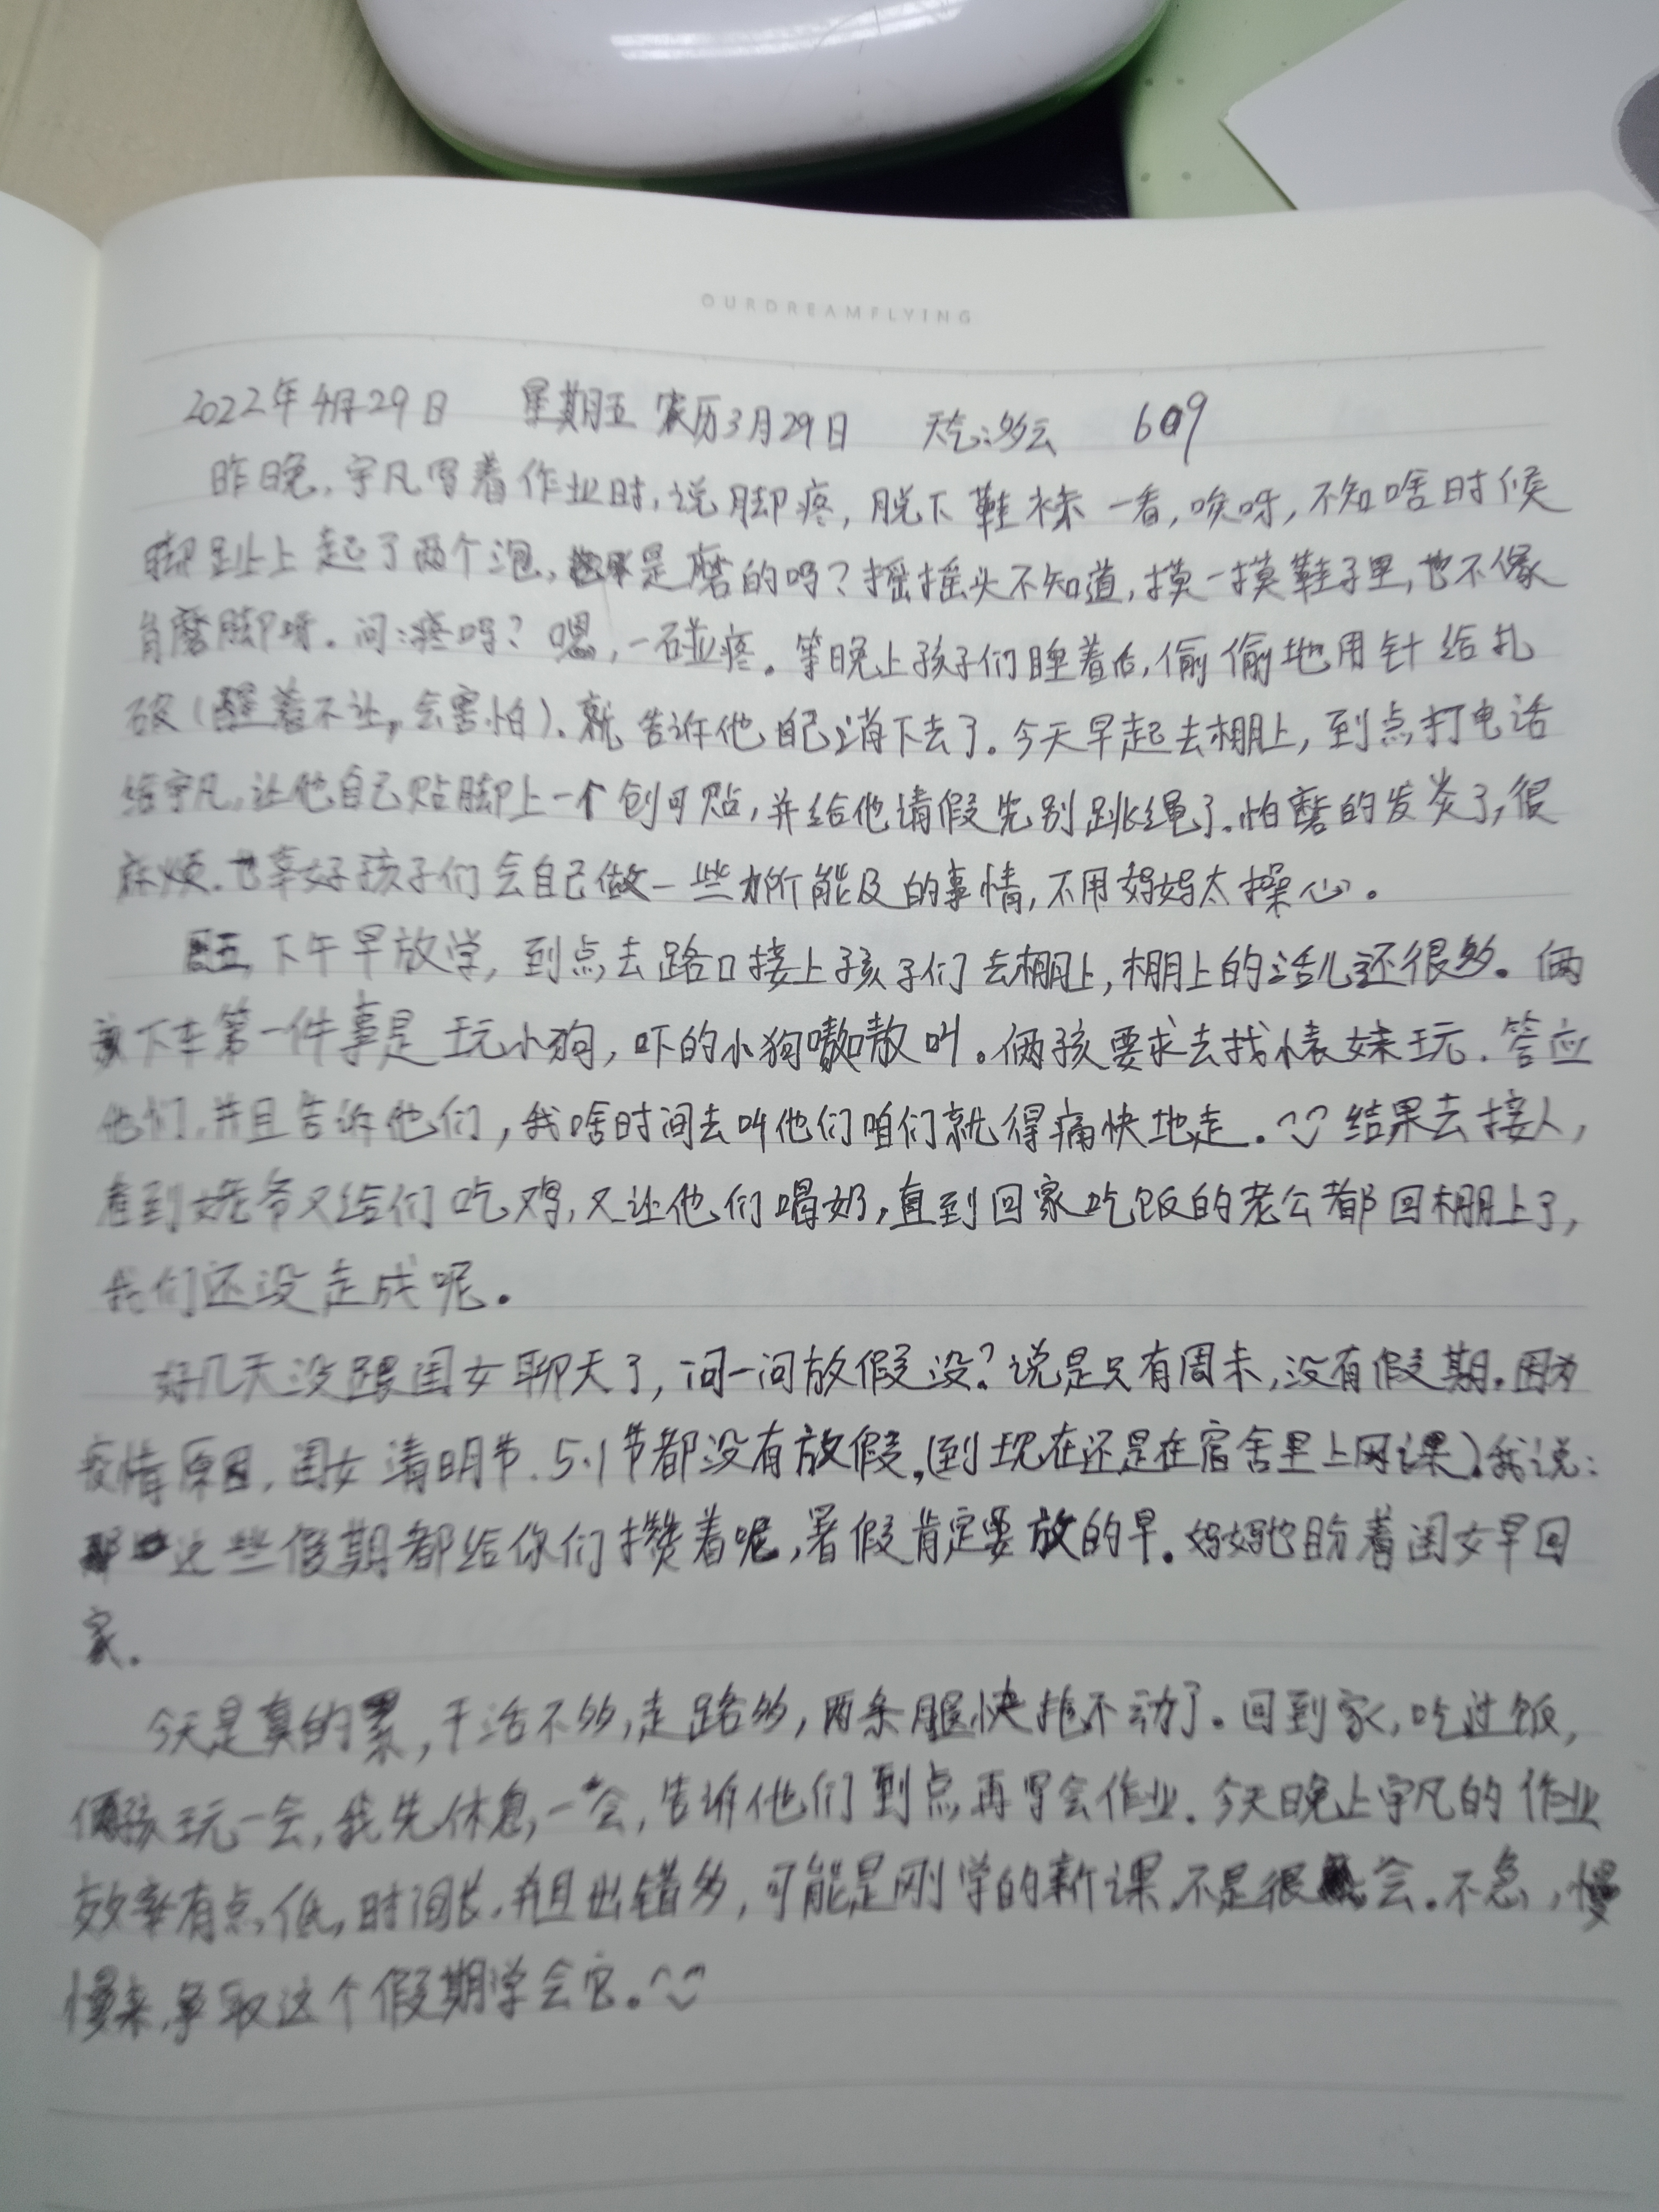 OURDREAMFLYING
2022年4月29日 星期五 农历3月29日 天气:多云 609
昨晚,宇凡写着作业时,说脚疼,脱下鞋袜一看,唉呀,不知啥时候
脚趾上起了两个泡,是磨的吗?摇摇头不知道,摸一摸鞋子里,也不像
肯磨脚呀。问:疼吗?嗯,一碰疼。等晚上孩子们睡着后,偷偷地用针给扎
破(醒着不让,会害怕).就告诉他自己消下去了。今天早起去棚上,到点打电话
给宇凡,让他自己贴脚上一个创可贴,并给他请假先别跳绳了.怕磨的发炎了,很
麻烦.也幸好孩子们会自己做一些力所能及的事情,不用妈妈太操心。
周五,下午早放学,到点去路口接上孩子们去棚上,棚上的活儿还很多。俩
孩下车第一件事是玩小狗,吓的小狗嗷嗷叫。俩孩要求去找表妹玩.答应
他们,并且告诉他们,我啥时间去叫他们咱们就得痛快地走.结果去接人,
看到姥爷又给们吃鸡,又让他们喝奶,直到回家吃饭的老公都回棚上了,
我们还没走成呢。
好几天没跟闺女聊天了,问一问放假没?说是只有周末,没有假期.因为
疫情原因,闺女清明节.5.1节都没有放假,(到现在还是在宿舍里上网课).我说:
这些假期都给你们攒着呢,暑假肯定要放的早.妈妈也盼着闺女早回
家.
今天是真的累,干活不多,走路多,两条腿快拖不动了.回到家,吃过饭,
俩孩玩一会,我先休息,一会,告诉他们到点再写会作业.今天晚上宇凡的作业
效率有点低,时间长.并且出错多,可能是刚学的新课,不是很会.不急,慢
慢来,争取这个假期学会它.